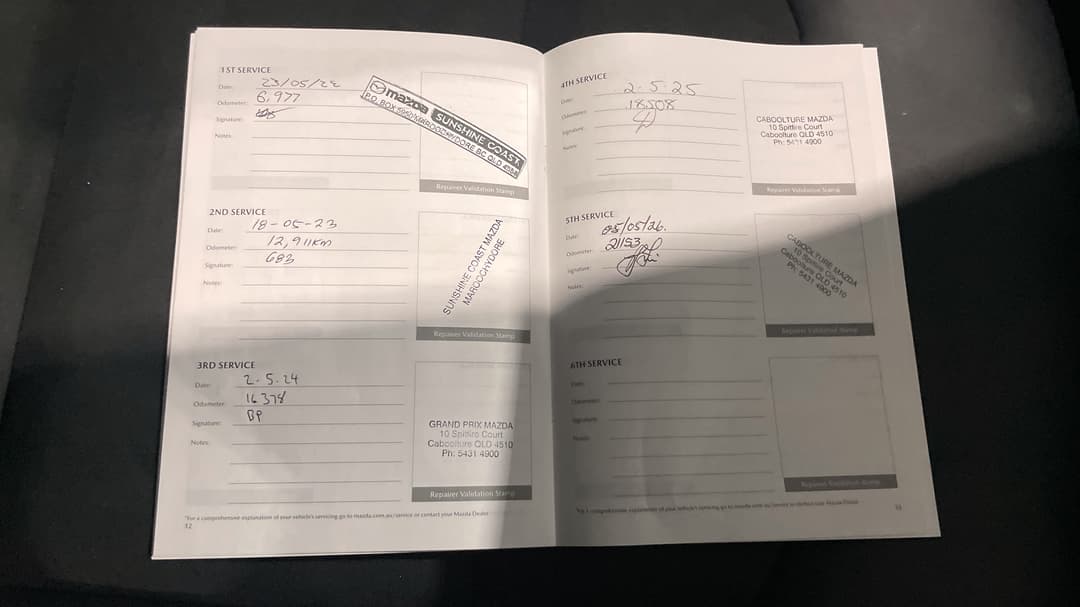 1ST SERVICE
Date: 23/05/22
Odometer: 6,977
Signature:
Notes:
mazda SUNSHINE COAST
P.O. BOX MAROOCHYDORE BC QLD 4558
Repairer Validation Stamp
2ND SERVICE
Date: 18-05-23
Odometer: 12,911km
Signature: 683
Notes:
SUNSHINE COAST MAZDA
MAROOCHYDORE
Repairer Validation Stamp
3RD SERVICE
Date: 2-5-24
Odometer: 16378
Signature: BP
Notes:
GRAND PRIX MAZDA
10 Spitfire Court
Caboolture QLD 4510
Ph: 5431 4900
Repairer Validation Stamp
*For a comprehensive explanation of your vehicle's servicing go to mazda.com.au/service or contact your Mazda Dealer
12
4TH SERVICE
Date: 2-5-25
Odometer: 18508
Signature:
Notes:
CABOOLTURE MAZDA
10 Spitfire Court
Caboolture QLD 4510
Ph: 5431 4900
Repairer Validation Stamp
5TH SERVICE
Date: 05/05/26.
Odometer: 21153
Signature:
Notes:
CABOOLTURE MAZDA
10 Spitfire Court
Caboolture QLD 4510
Ph: 5431 4900
Repairer Validation Stamp
6TH SERVICE
Date:
Odometer:
Signature:
Notes:
Repairer Validation Stamp
*For a comprehensive explanation of your vehicle's servicing go to mazda.com.au/service or contact your Mazda Dealer
13